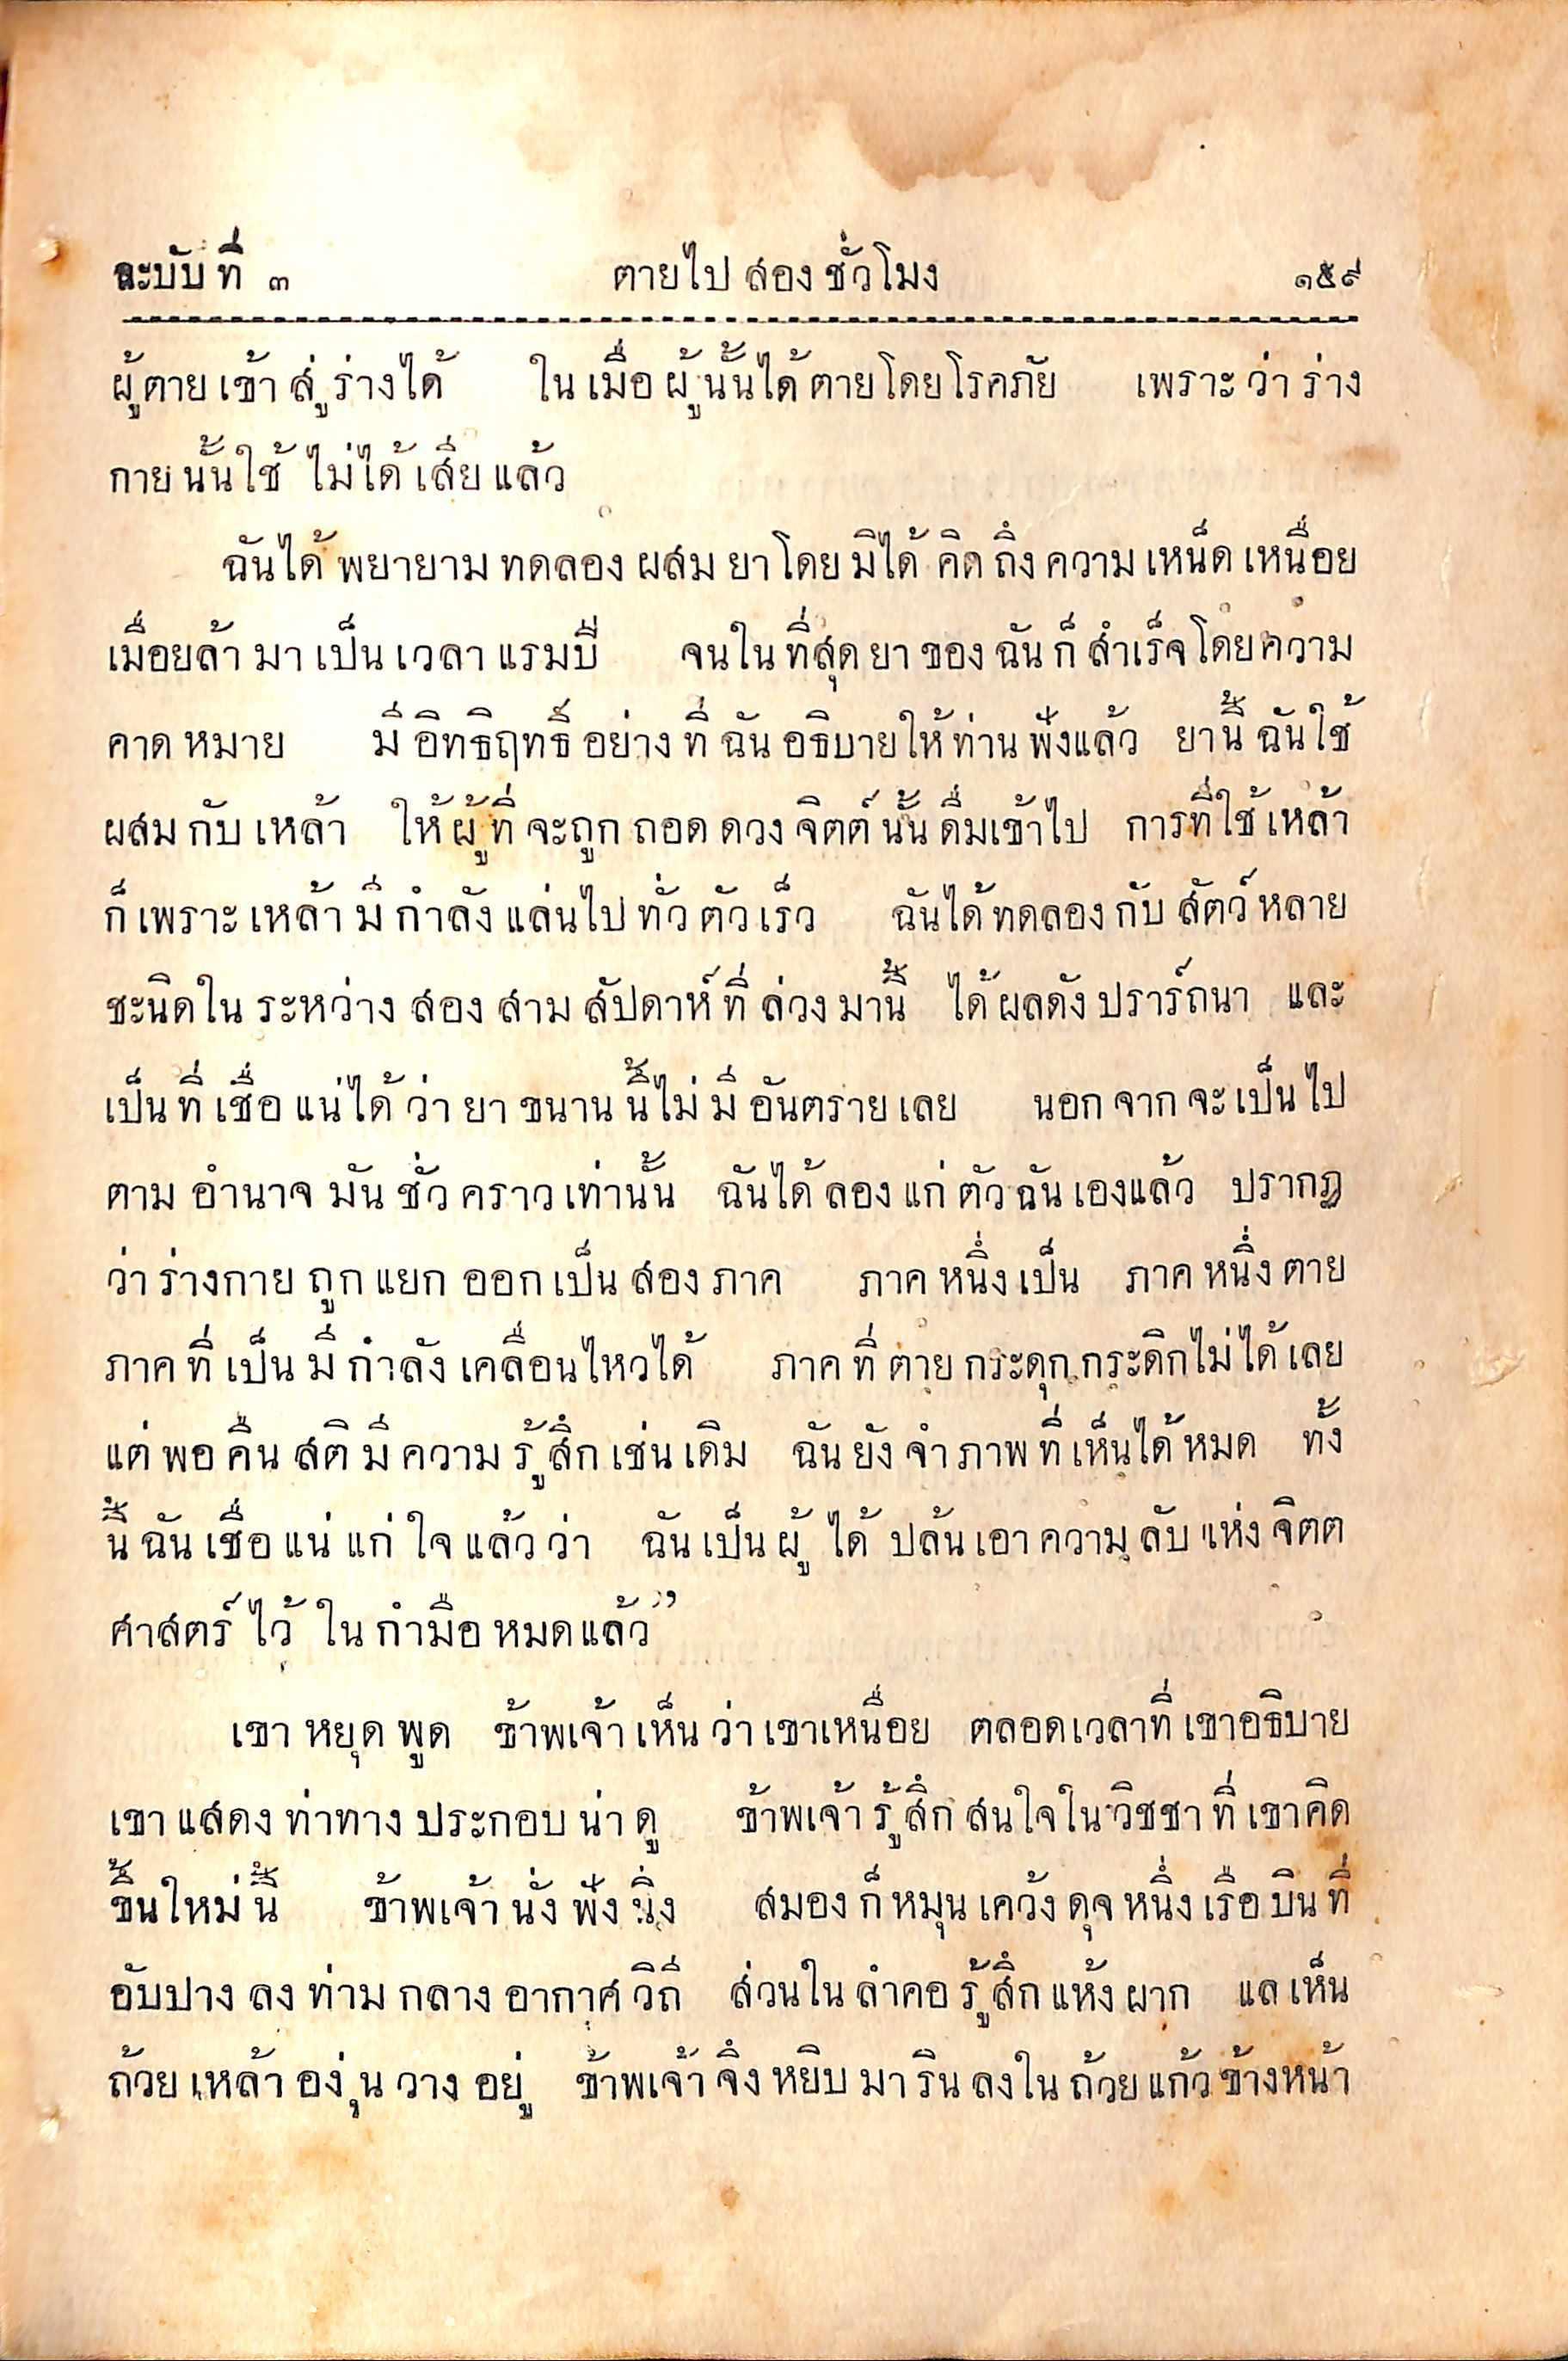 ฉะบับที่ ๓ ตายไปสองชั่วโมง ๑๕๙
ผู้ตายเข้าสู่ร่างได้ ในเมื่อผู้นั้นได้ตายโดยโรคภัย เพราะว่าร่าง
กายนั้นใช้ไม่ได้เสียแล้ว
ฉันได้พยายามทดลองผสมยาโดยมิได้คิดถึงความเหน็ดเหนื่อย
เมื่อยล้ามาเป็นเวลาแรมปี จนในที่สุดยาของฉันก็สำเร็จโดยความ
คาดหมาย มีอิทธิฤทธิ์อย่างที่ฉันอธิบายให้ท่านฟังแล้ว ยานี้ฉันใช้
ผสมกับเหล้า ให้ผู้ที่จะถูกถอดดวงจิตต์นั้นดื่มเข้าไป การที่ใช้เหล้า
ก็เพราะเหล้ามีกำลังแล่นไปทั่วตัวเร็ว ฉันได้ทดลองกับสัตว์หลาย
ชะนิดในระหว่างสองสามสัปดาห์ที่ล่วงมานี้ ได้ผลดังปรารถนา และ
เป็นที่เชื่อแน่ได้ว่ายาขนานนี้ไม่มีอันตรายเลย นอกจากจะเป็นไป
ตามอำนาจมันชั่วคราวเท่านั้น ฉันได้ลองแก่ตัวฉันเองแล้ว ปรากฏ
ว่าร่างกายถูกแยกออกเป็นสองภาค ภาคหนึ่งเป็น ภาคหนึ่งตาย
ภาคที่เป็นมีกำลังเคลื่อนไหวได้ ภาคที่ตายกระดุกกระดิกไม่ได้เลย
แต่พอคืนสติมีความรู้สึกเช่นเดิม ฉันยังจำภาพที่เห็นได้หมด ทั้ง
นี้ฉันเชื่อแน่แก่ใจแล้วว่า ฉันเป็นผู้ได้ปล้นเอาความลับแห่งจิตต
ศาสตร์ไว้ในกำมือหมดแล้ว”
เขาหยุดพูด ข้าพเจ้าเห็นว่าเขาเหนื่อย ตลอดเวลาที่เขาอธิบาย
เขาแสดงท่าทางประกอบน่าดู ข้าพเจ้ารู้สึกสนใจในวิชชาที่เขาคิด
ขึ้นใหม่นี้ ข้าพเจ้านั่งฟังนิ่ง สมองก็หมุนเคว้งดุจหนึ่งเรือบินที่
อับปางลงท่ามกลางอากาศวิถี ส่วนในลำคอรู้สึกแห้งผาก แลเห็น
ถ้วยเหล้าองุ่นวางอยู่ ข้าพเจ้าจึงหยิบมารินลงในถ้วยแก้วข้างหน้า